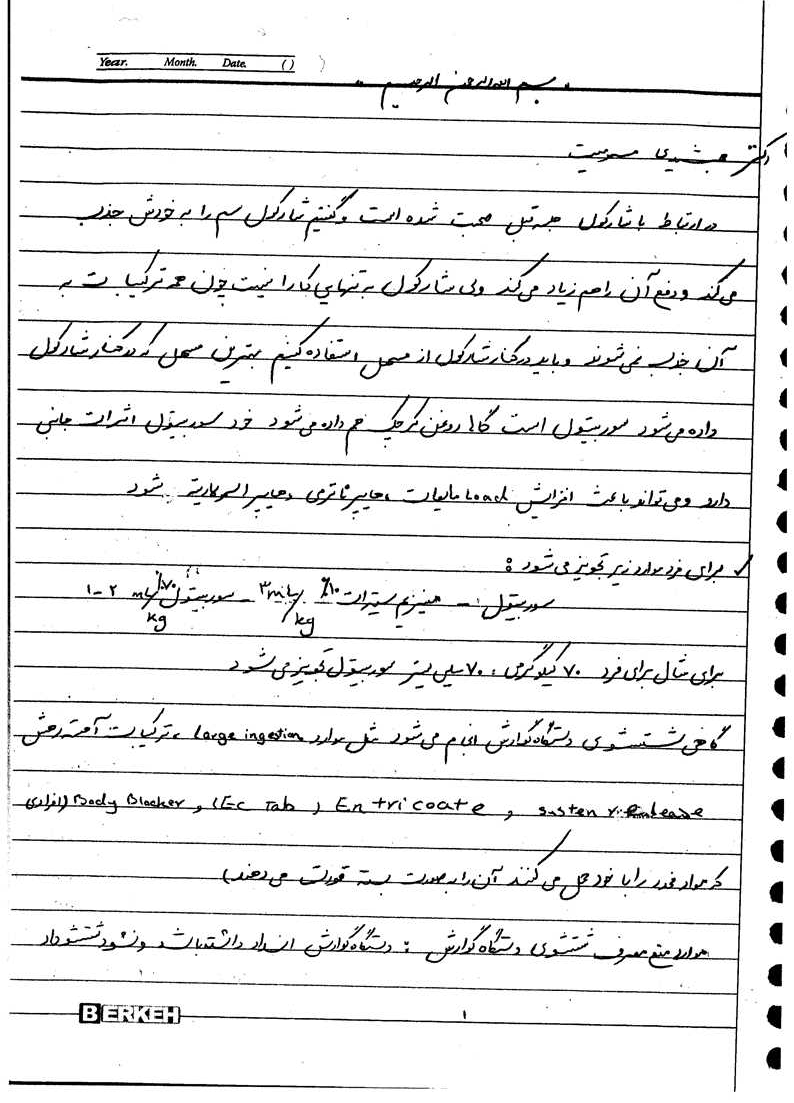 Year. Month. Date. ( )
بسم الله الرحمن الرحیم
دکتر جمشیدی مسمومیت
در ارتباط با شارکول جلسه قبل صحبت شده است و گفتیم شارکول سم را به خودش جذب
می کند و دفع آن را هم زیاد می کند ولی شارکول به تنهایی کارا نیست چون همه ترکیبات به
آن جذب نمی شوند و باید در کنار شارکول از مسهل استفاده کنیم بهترین مسهل که در کنار شارکول
داده می شود سوربیتول است گاها روغن کرچک هم داده می شود خود سوربیتول اثرات جانبی
دارد و می تواند باعث افزایش Load مایعات، هایپرناترمی و هایپراسمولاریته شود
✓ برای فرد موارد زیر تجویز می شود :
سوربیتول - منیزیم سیترات ۱۰٪ ۳ mL/kg - سوربیتول ۷۰٪ ۱-۲ mL/kg
برای مثال برای فرد ۷۰ کیلوگرمی ، ۷۰ میلی لیتر سوربیتول تجویز می شود
گاهی شستشوی دستگاه گوارش انجام می شود مثل موارد large ingestion ، ترکیبات آهسته رهش
susten release و Entricoate ( Ec Tab ) و Body Blocker (افرادی
که مواد مخدر را با خود حمل می کنند آن را بصورت بسته قورت می دهند)
موارد منع مصرف شستشوی دستگاه گوارش : دستگاه گوارش انسداد داشته باشد و نشود شستشو داد
BERKEH
۱